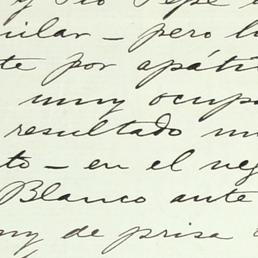 y Tio Pepe
uilar - pero l
te por apáti
muy ocup
resultado mu
to - en el neg
Blanco ante
my de prisa